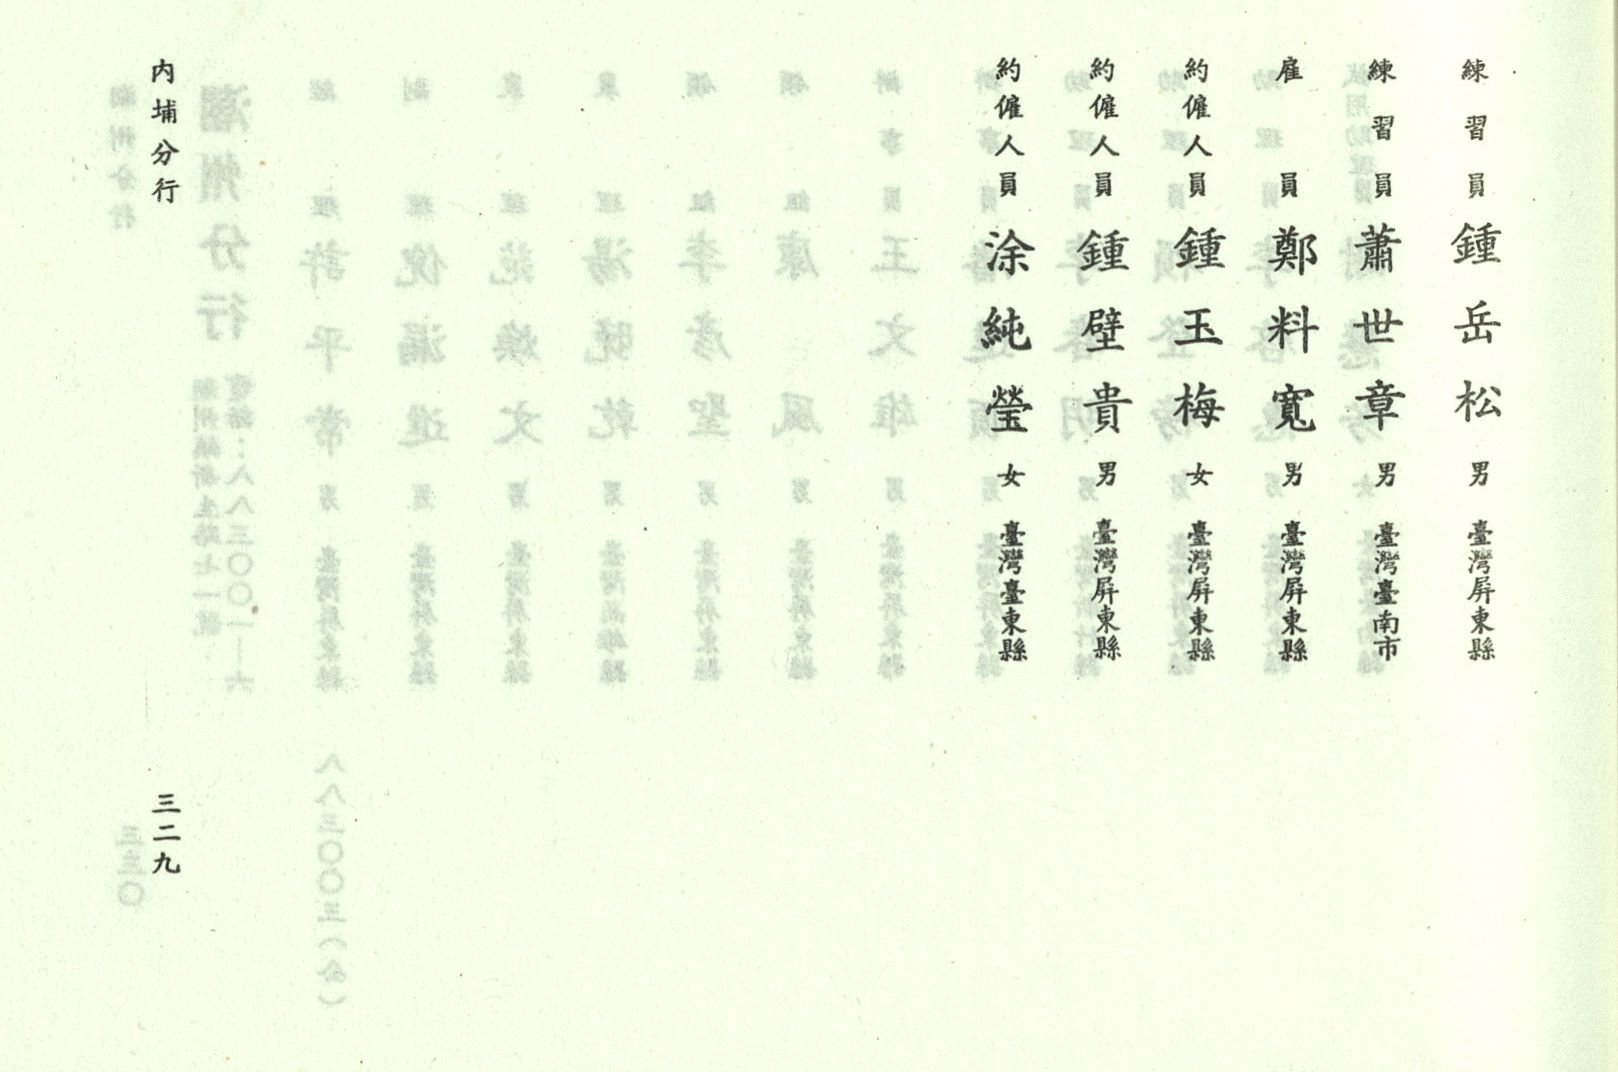 練習員 鍾岳松 男 臺灣屏東縣
練習員 蕭世章 男 臺灣臺南市
雇員 鄭料寬 男 臺灣屏東縣
約僱人員 鍾玉梅 女 臺灣屏東縣
約僱人員 鍾壁貴 男 臺灣屏東縣
約僱人員 涂純瑩 女 臺灣臺東縣
內埔分行
三二九